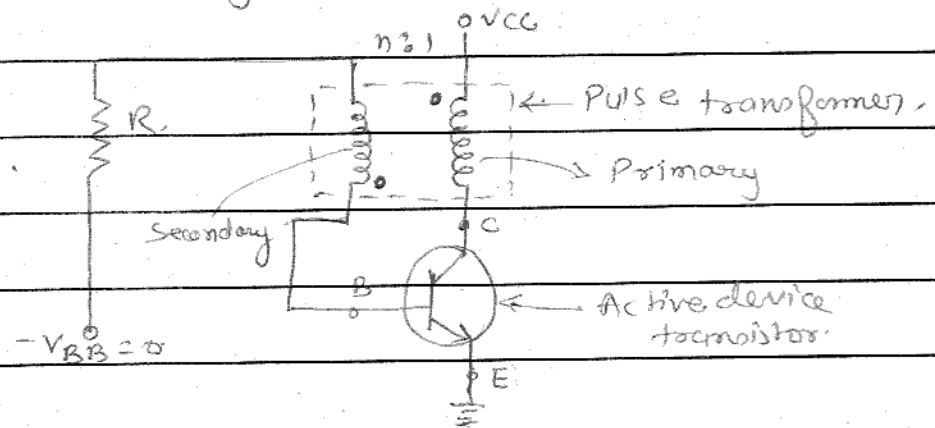 VCC
n:1
Pulse transformer.
R.
Primary
Secondary
C
B
Active device
transistor.
-VBB = 0
E